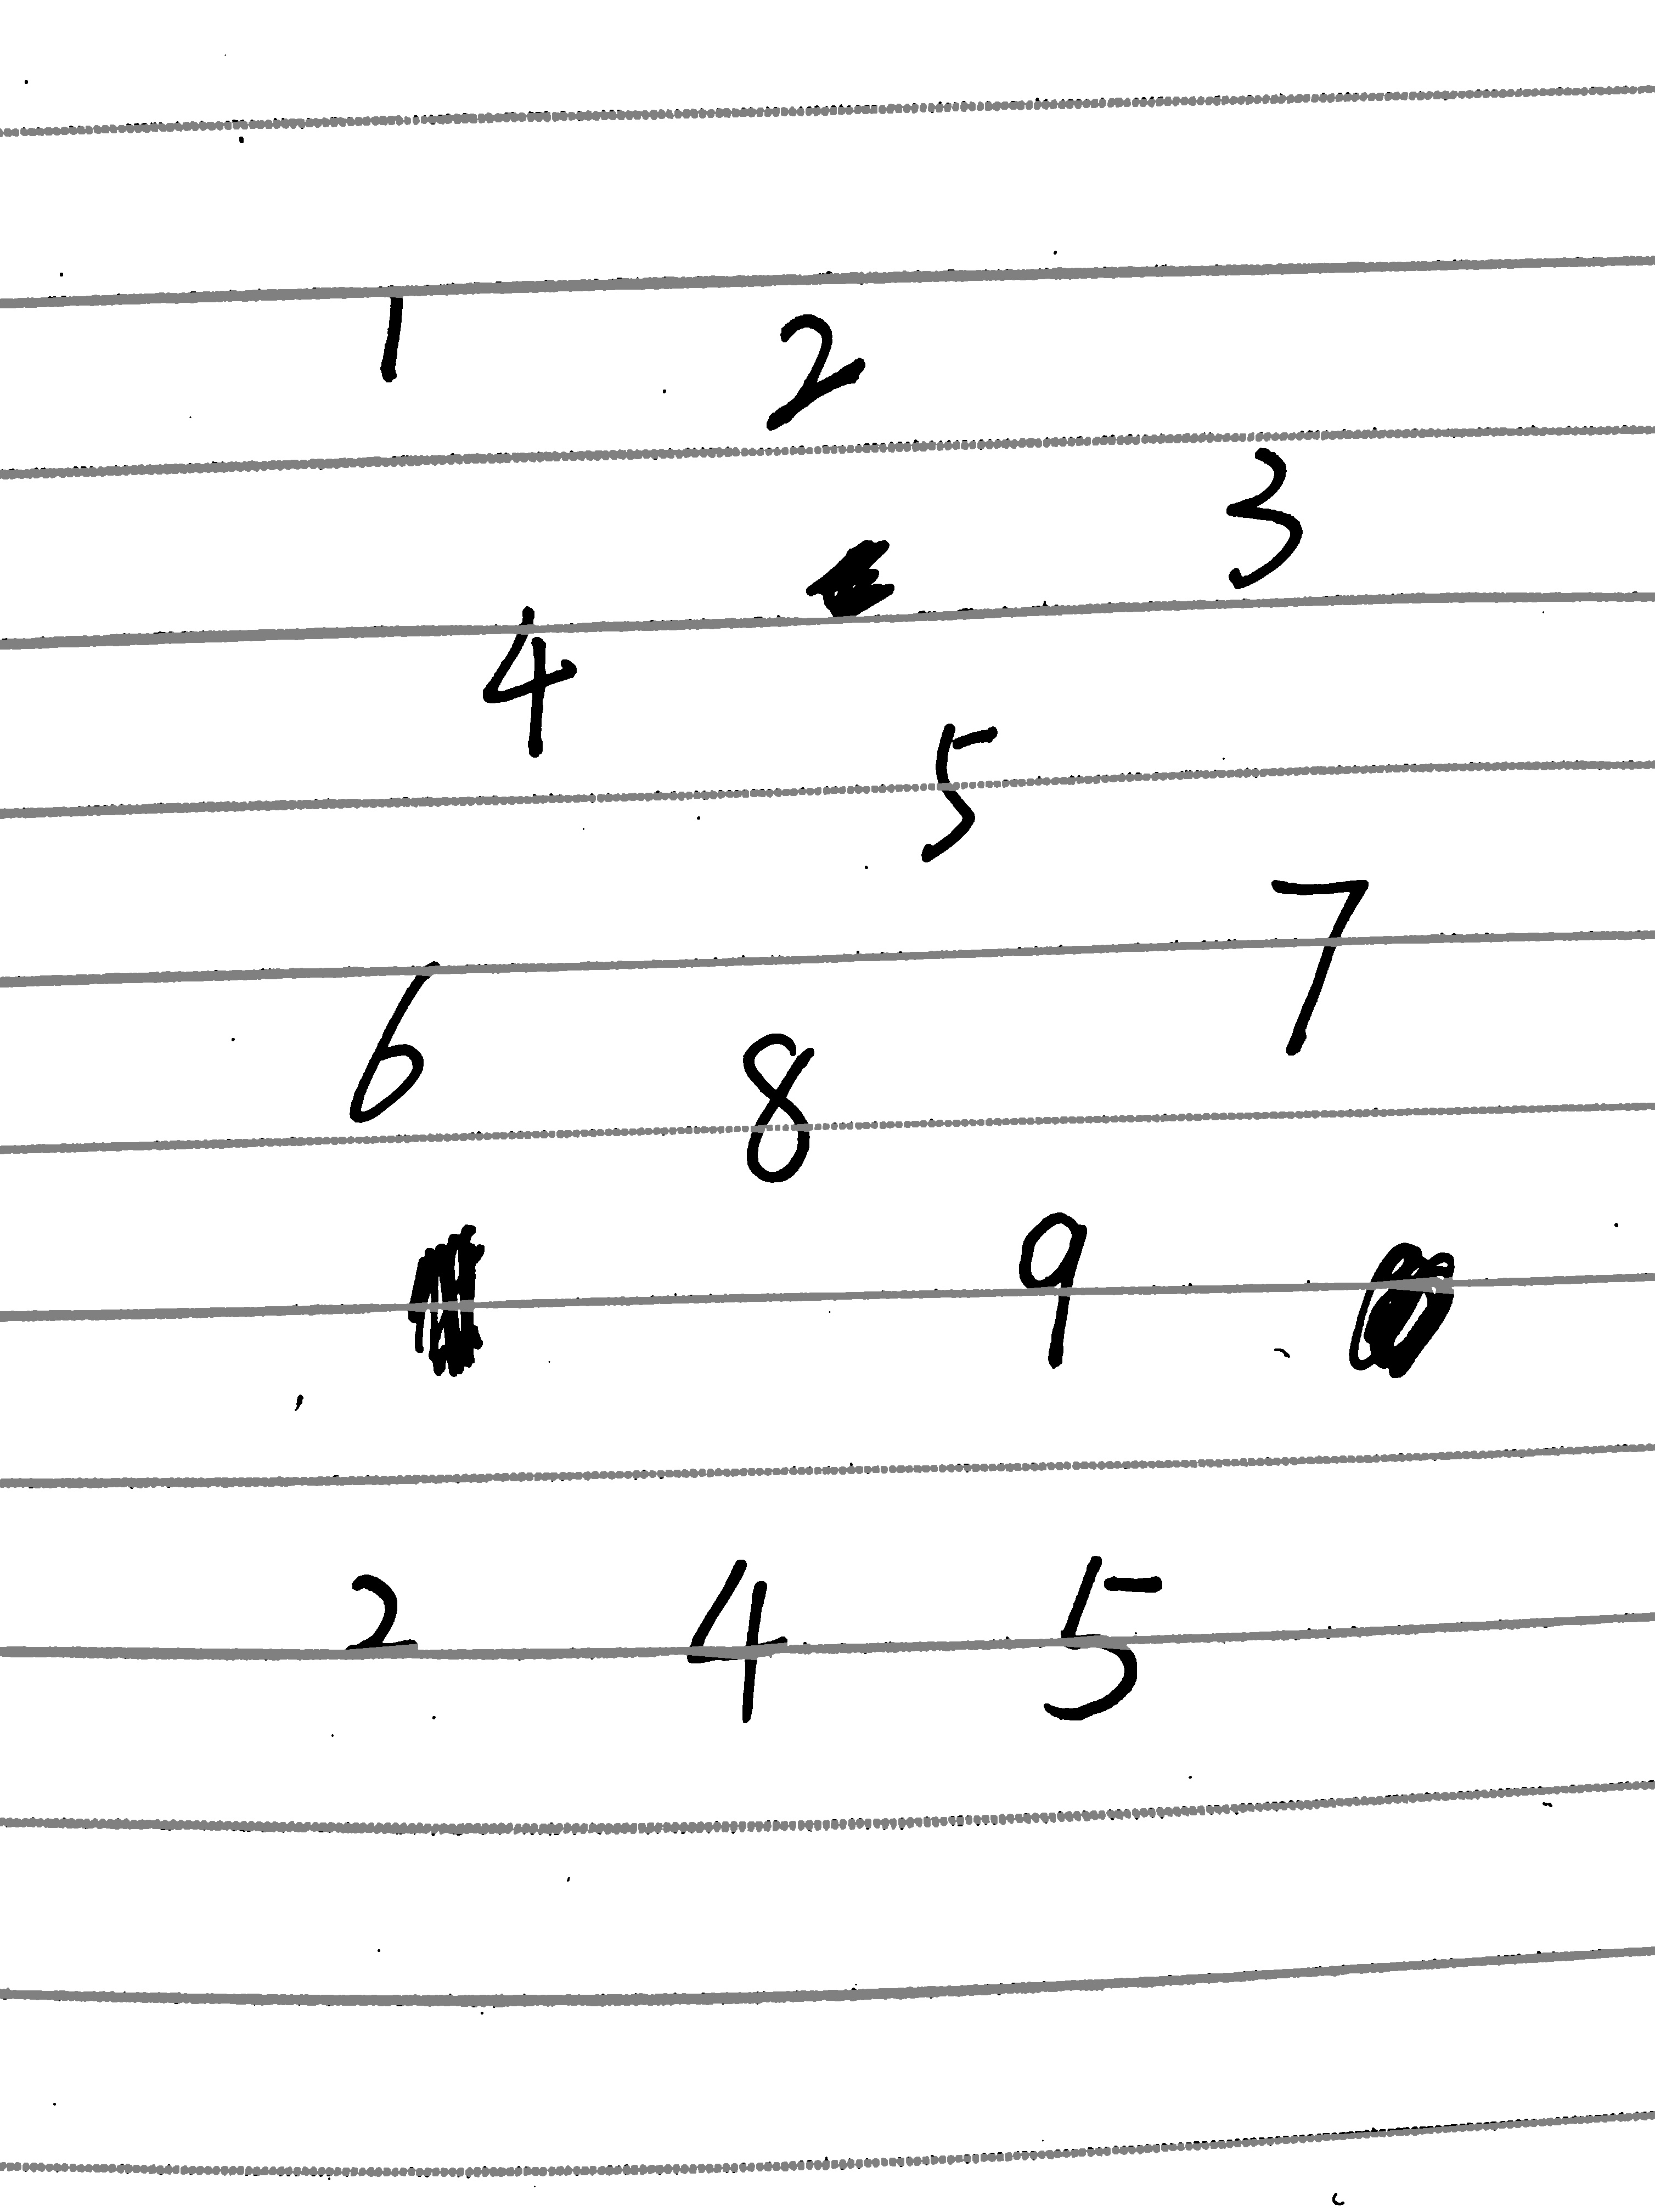 1 2
3
4
5
7
6
8
9
2 4 5